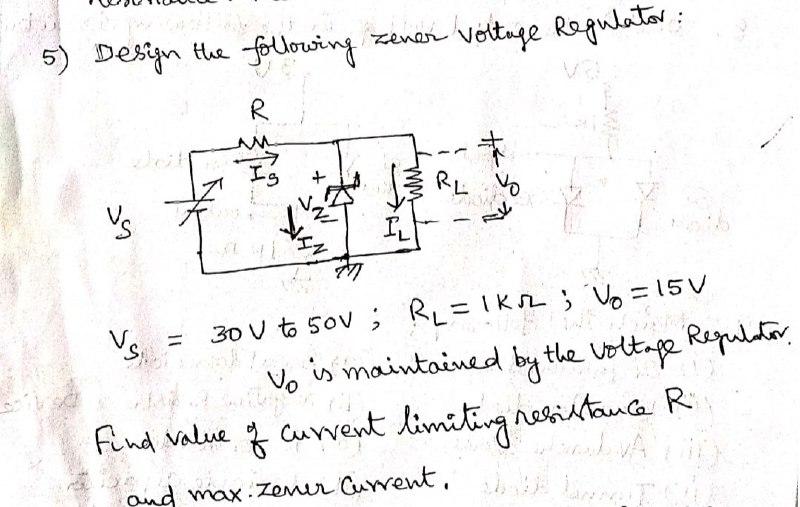 5) Design the following zener Voltage Regulator:
R
Is
+
Vs
Vz
Iz
IL
RL
+
Vo
-
Vs = 30V to 50V ; RL = 1KΩ ; Vo = 15V
Vo is maintained by the Voltage Regulator.
Find value of current limiting resistance R
and max. zener Current.